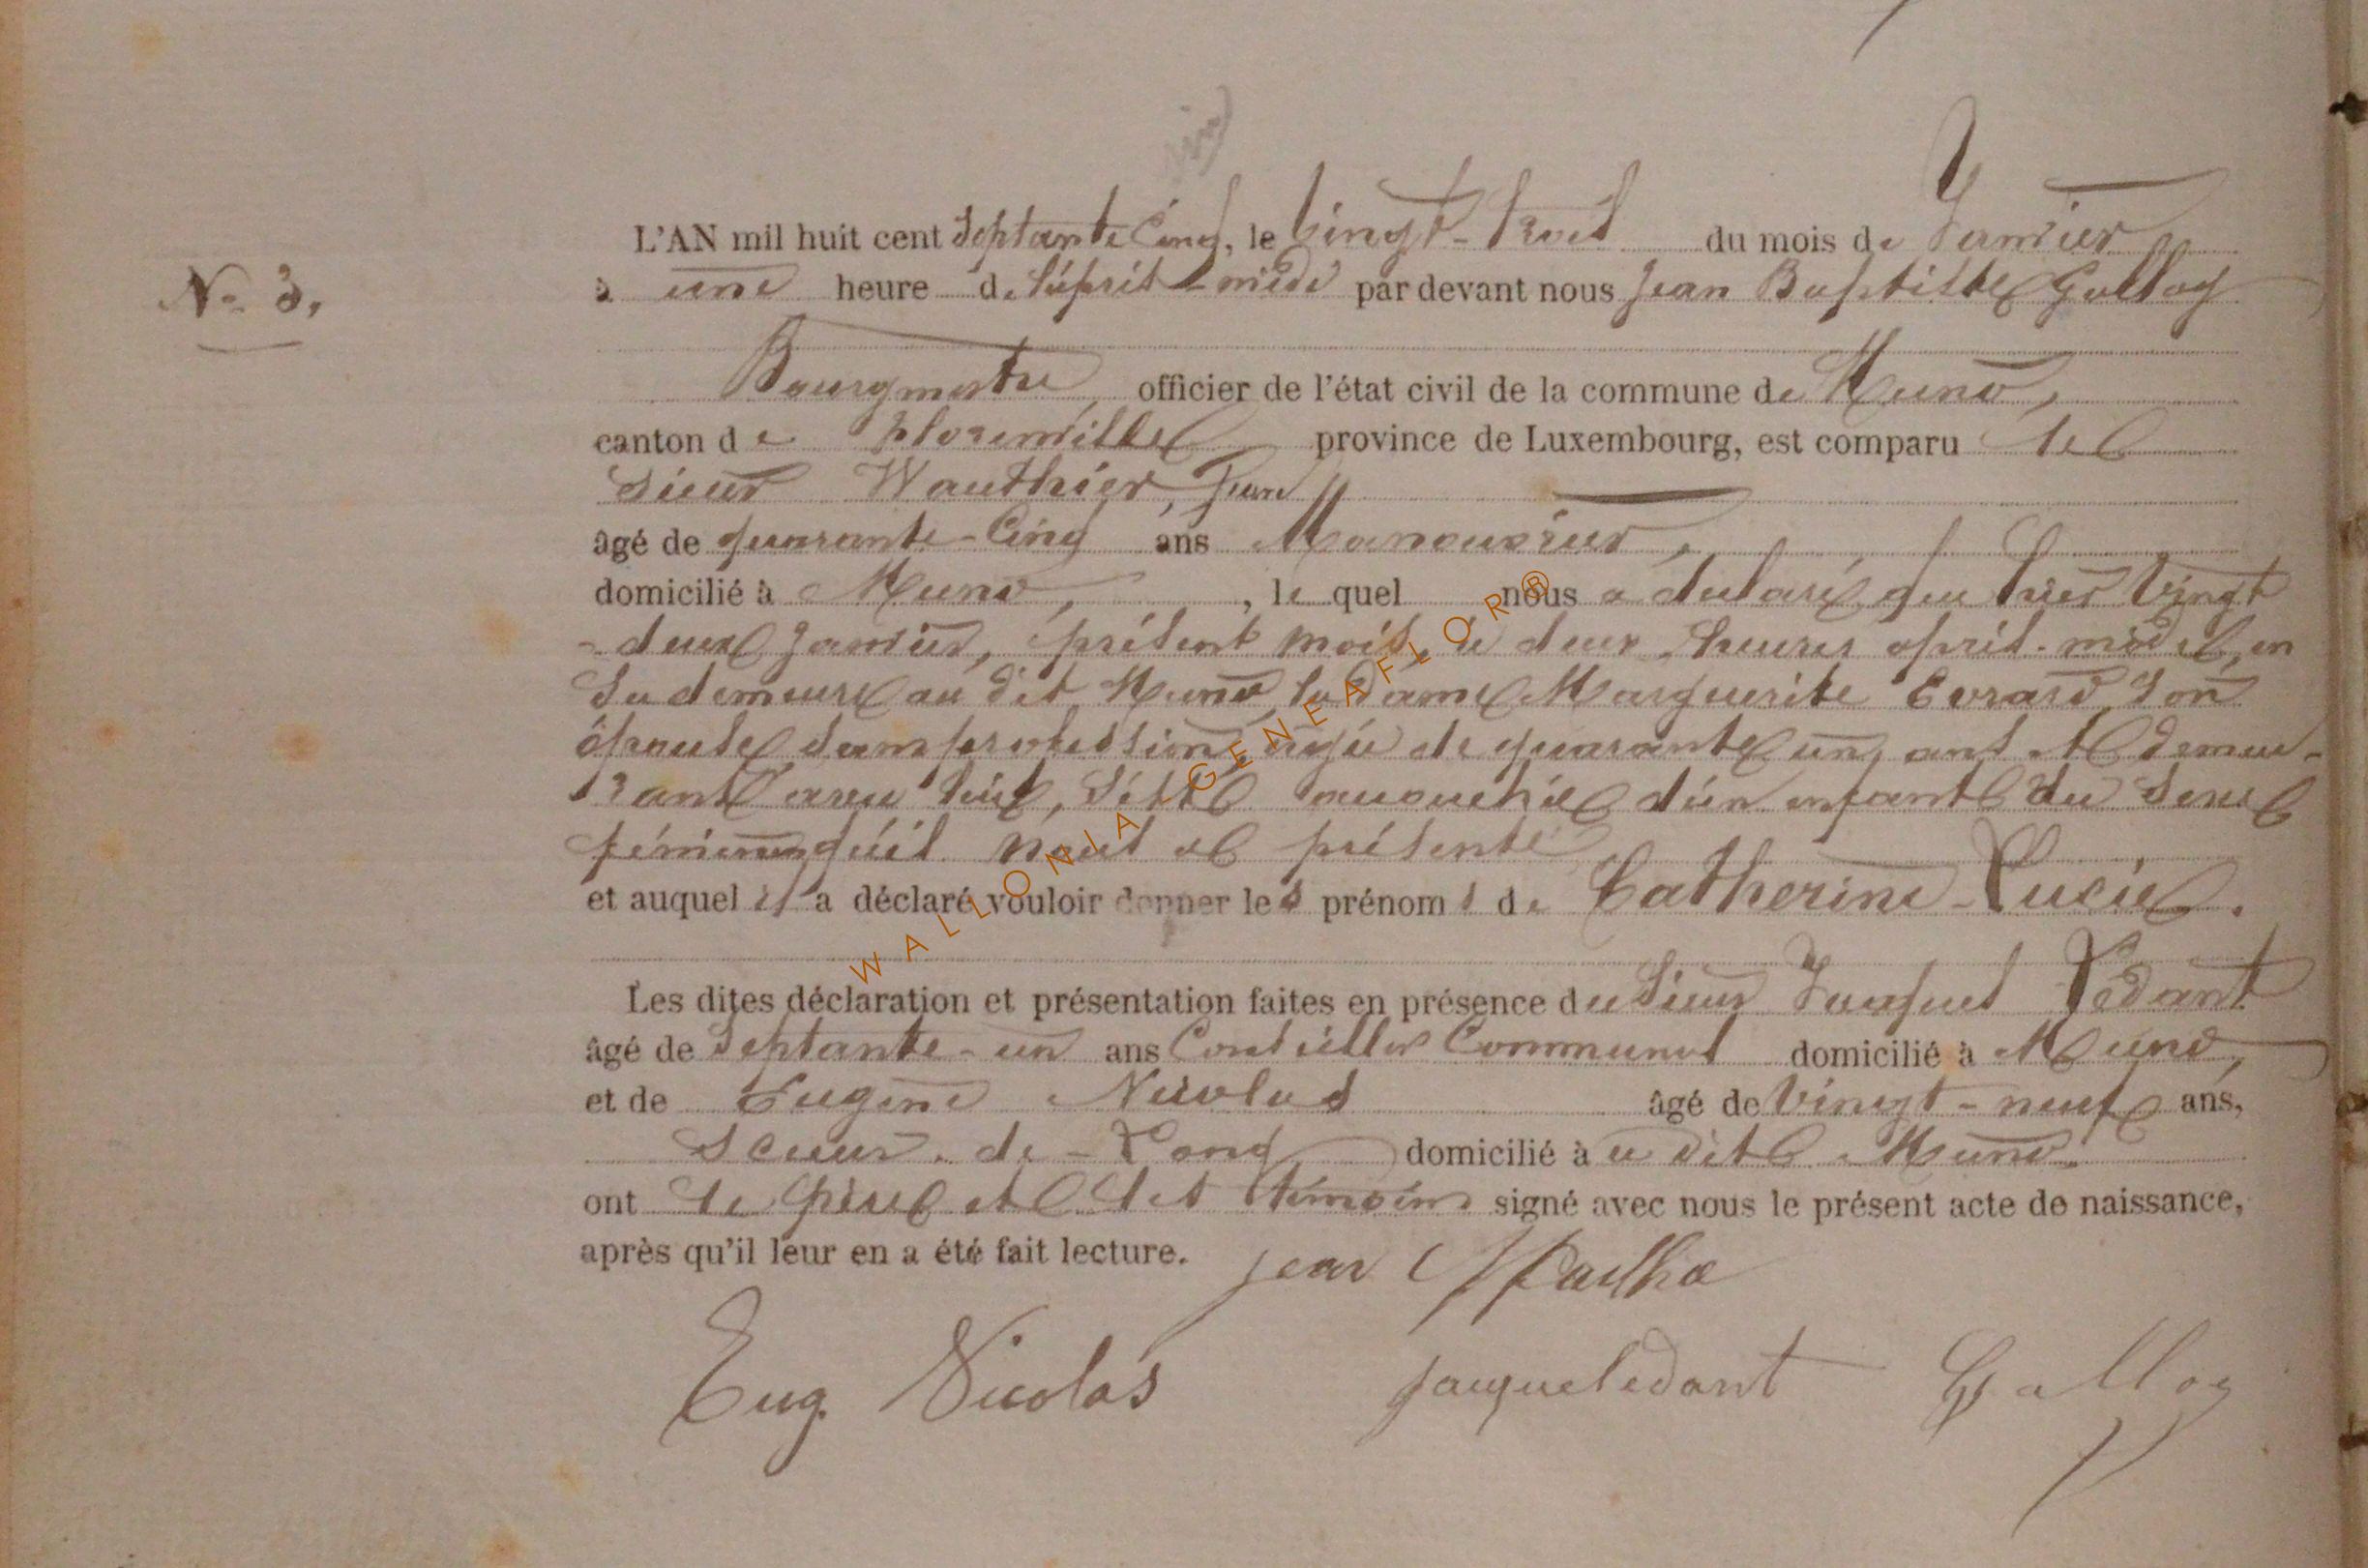 L'AN mil huit cent Septante Cinq, le Vingt-trois du mois de Janvier
N° 3.
à une heure de l'après-midi par devant nous Jean Baptiste Golloy
Bourgmestre officier de l'état civil de la commune de Muno,
canton de Florenville province de Luxembourg, est comparu le
Sieur Wauthier, Jean
âgé de quarante-Cinq ans Manouvrier,
domicilié à Muno, , le quel nous a déclaré que hier Vingt
-deux Janvier, présent mois, à deux heures après-midi, en
sa demeure au dit Muno, la Dame Marguerite Evrard, Son
épouse, sans profession, âgée de quarante un ans et demeu-
rant avec lui, s'est accouchée d'un enfant du sexe
féminin qu'il nous a présenté
et auquel il a déclaré vouloir donner les prénoms de Catherine-Lucie.
Les dites déclaration et présentation faites en présence du Sieur Jacques Ledant
âgé de Septante-un ans Conseiller Communal domicilié à Muno,
et de Eugène Nicolas âgé de Vingt-neuf ans,
Scieur-de-Long domicilié à u dit Muno
ont le père et les témoins signé avec nous le présent acte de naissance,
après qu'il leur en a été fait lecture. jean
Eug. Nicolas jacque ledant Golloy
WALLONIA GENEAFLOR®